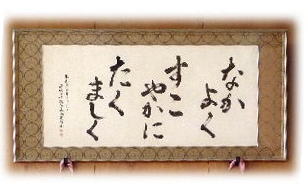 なかよく
すこやかに
たくましく